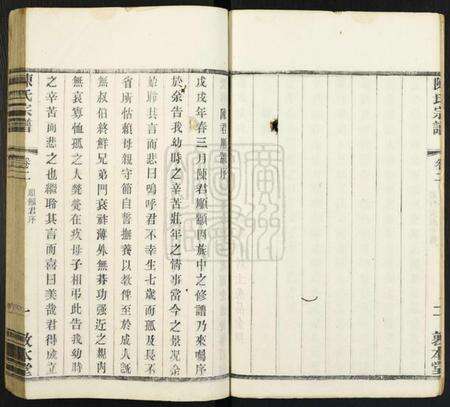 陳氏宗譜
卷二
二
敦本堂
陳君順顯序
戊戌年春三月陳君順顯因族中之修譜乃來囑序
於余告我幼時之辛苦壯年之情事當今之景况余
始聆其言而悲曰嗚呼君不幸生七歲而孤及長不
省所怙賴母親守節自誓撫養以教俾至於成人說
無叔伯終鮮兄弟門衰祚薄外無碁功强近之親內
無哀寡恤孤之人煢煢在疚母子相弔此告我幼時
之辛苦而悲之也繼聆其言而喜曰美哉君得成立
陳氏宗譜
卷二
順顯君序
一
敦本堂